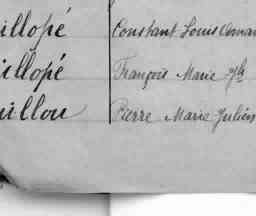 illopé Constant Louis Osmar
illopé François Marie
uillou Pierre Marie Julien